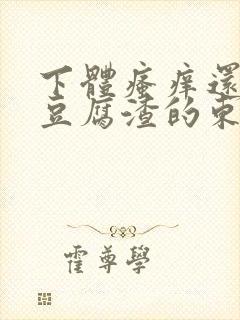 下體瘙痒還
豆腐渣的東
霍尊學